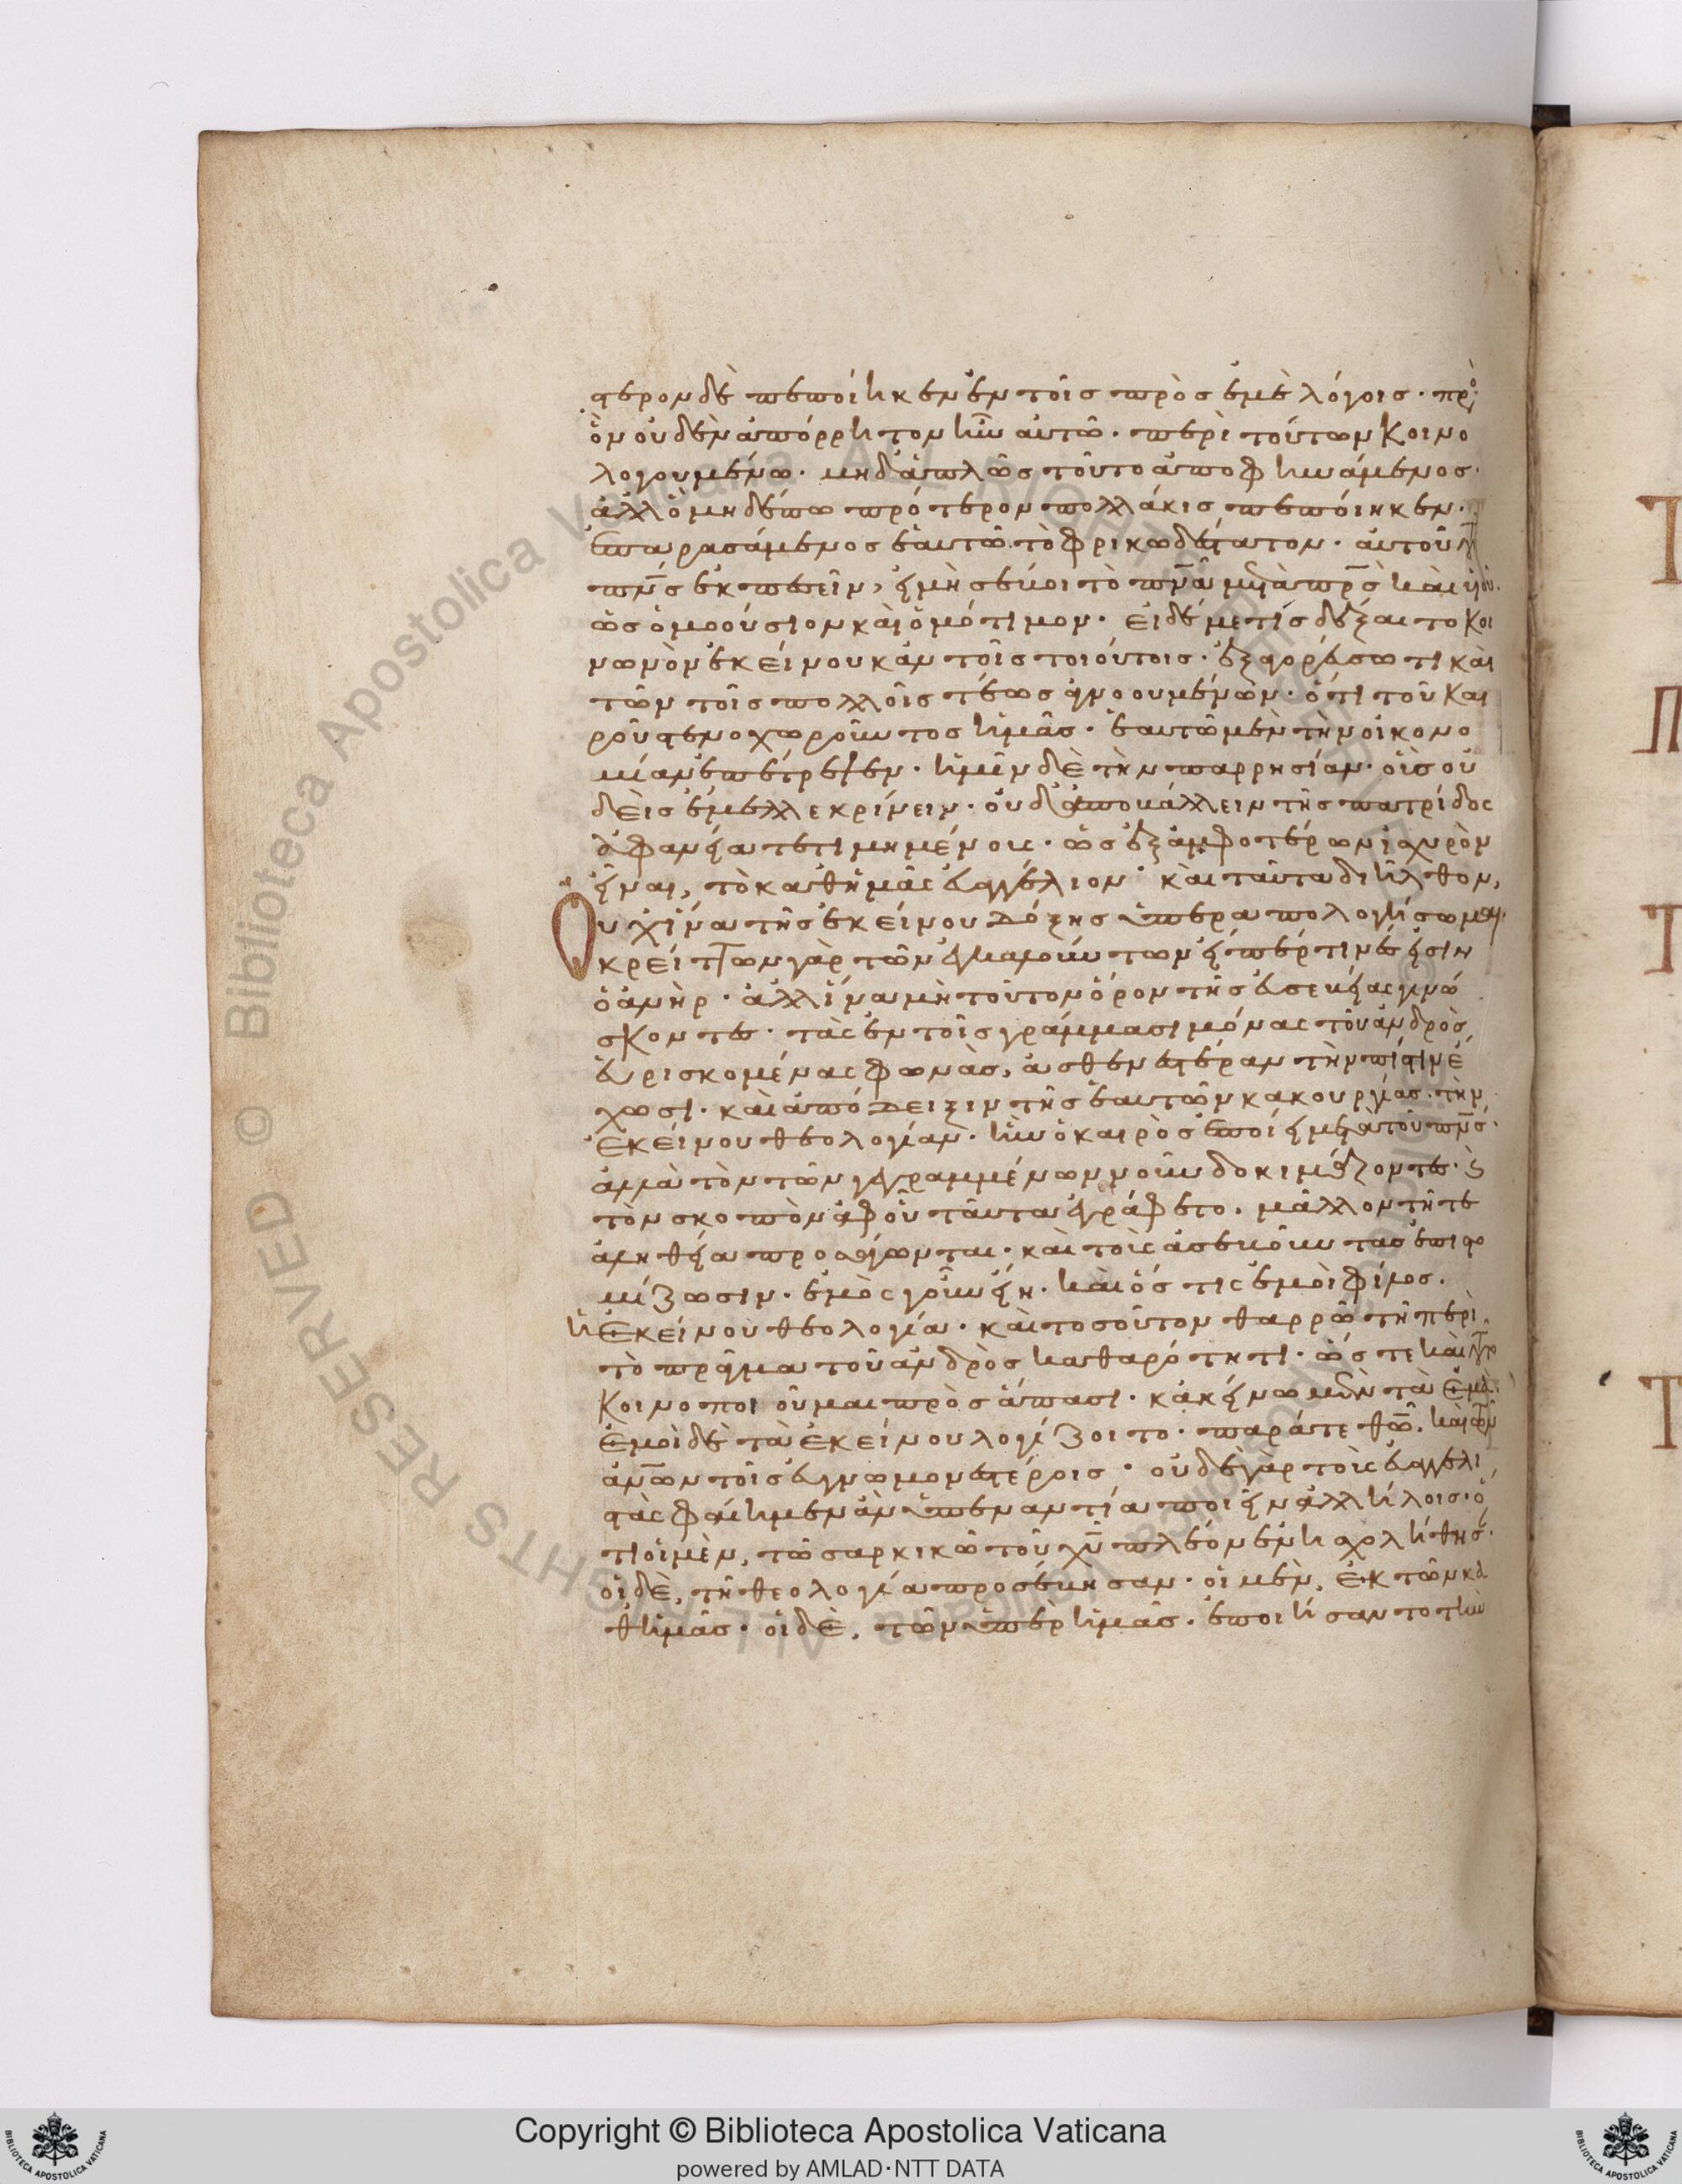 στερον δὲ πεποίηκεν ἐν τοῖς πρὸς ἐμὲ λόγοις· πρὸς
ὃν οὐδὲν ἀπόρρητον ἦν αὐτῶ· περὶ τούτων κοινο
λογουμένω· μηδ' ἁπλῶς τοῦτο ἀποφηνάμενος·
ἀλλ' ὃ μηδέπω πρότερον πολλάκις πεποίηκεν·
ἐπαρασάμενος ἑαυτῶ τὸ φρικωδέστατον· αὐτοῦ τοῦ
πν̅ς ἐκπεσεῖν, εἰ μὴ σέβοι τὸ πν̅α μετὰ πρ̅ς καὶ υἱοῦ
ὡς ὁμοούσιον καὶ ὁμότιμον· εἰ δέ με τίς δέξαιτο κοι
νωνὸν ἐκείνου κἀν τοῖς τοιούτοις· ἐξαγορεύσω τι καὶ
τῶν τοῖς πολλοῖς τέως ἀγνοουμένων· ὅτι τοῦ και
ροῦ στενοχωροῦντος ἡμᾶς· ἑαυτῶ μὲν τὴν οἰκονο
μίαν ἐπέτρεψεν· ἡμῖν δὲ τὴν παρρησίαν· οἷς οὐ
δεὶς ἔμελλε κρίνειν· οὐδ' ἀποβάλλειν τῆς πατρίδος
ἀφανεία τετιμημένους· ὡς ἐξ ἀμφοτέρων ἰσχυρὸν
εἶναι, τὸ καθ' ἡμᾶς εὐαγγέλιον· καὶ ταῦτα διῆλθον,
Οὐχ ἵνα τῆς ἐκείνου δόξης ὑπεραπολογήσωμαι·
κρείττων γὰρ τῶν ἐγκαλούντων εἴπερ τινές εἰσιν
ὁ ἀνὴρ· ἀλλ' ἵνα μὴ τοῦτον ὅρον τῆς εὐσεβείας γινώ
σκοντες· τὰς ἐν τοῖς γράμμασι μόνας τοῦ ἀνδρὸς
εὑρισκομένας φωνὰς, ἀσθενεστέραν τὴν πίστιν ἔ
χωσι· καὶ ἀπόδειξιν τῆς ἑαυτῶν κακουργίας· τὴν
ἐκείνου θεολογίαν· ἣν ὁ καιρὸς ἐποίει μετὰ τοῦ πν̅ς·
ἀλλὰ τὸν τῶν γεγραμμένων νοῦν δοκιμάζοντες· καὶ
τὸν σκοπὸν ἀφ' οὗ ταῦτα ἐγράφετο· μᾶλλον τῆ τε
ἀληθεία προσάγωνται· καὶ τοὺς ἀσεβοῦντας ἐπιστο
μίζωσιν· ἐμοὶ γοῦν εἴη· καὶ ὅς τις ἐμοὶ φίλος·
ἡ ἐκείνου θεολογία· καὶ τοσοῦτον θαρρῶ τῆ περὶ
τὸ πρᾶγμα τοῦ ἀνδρὸς καθαρότητι· ὥς τε καὶ τοῦτο
κοινοποιοῦμαι πρὸς ἅπασι· κἀκείνω μὲν τὰ ἐμὰ·
ἐμοὶ δὲ τὰ ἐκείνου λογίζοιτο· παρά τε θῶ̅, καὶ τῶν
ἀν̅ων τοῖς εὐγνωμονεστέροις· οὐδὲ γὰρ τοὺς εὐαγγελι
στὰς φαίημεν ἂν ὑπεναντία ποιεῖν ἀλλήλοις· ὅ
τι οἱ μὲν, τῶ σαρκικῶ τοῦ χῦ̅ πλέον ἐνησχολήθησαν·
οἱ δὲ, τῆ θεολογία προσέβησαν· οἱ μὲν, ἐκ τῶν κα
θ' ἡμᾶς· οἱ δὲ, τῶν ὑπὲρ ἡμᾶς· ἐποιήσαντο τὴν
Copyright © Biblioteca Apostolica Vaticana
powered by AMLAD·NTT DATA